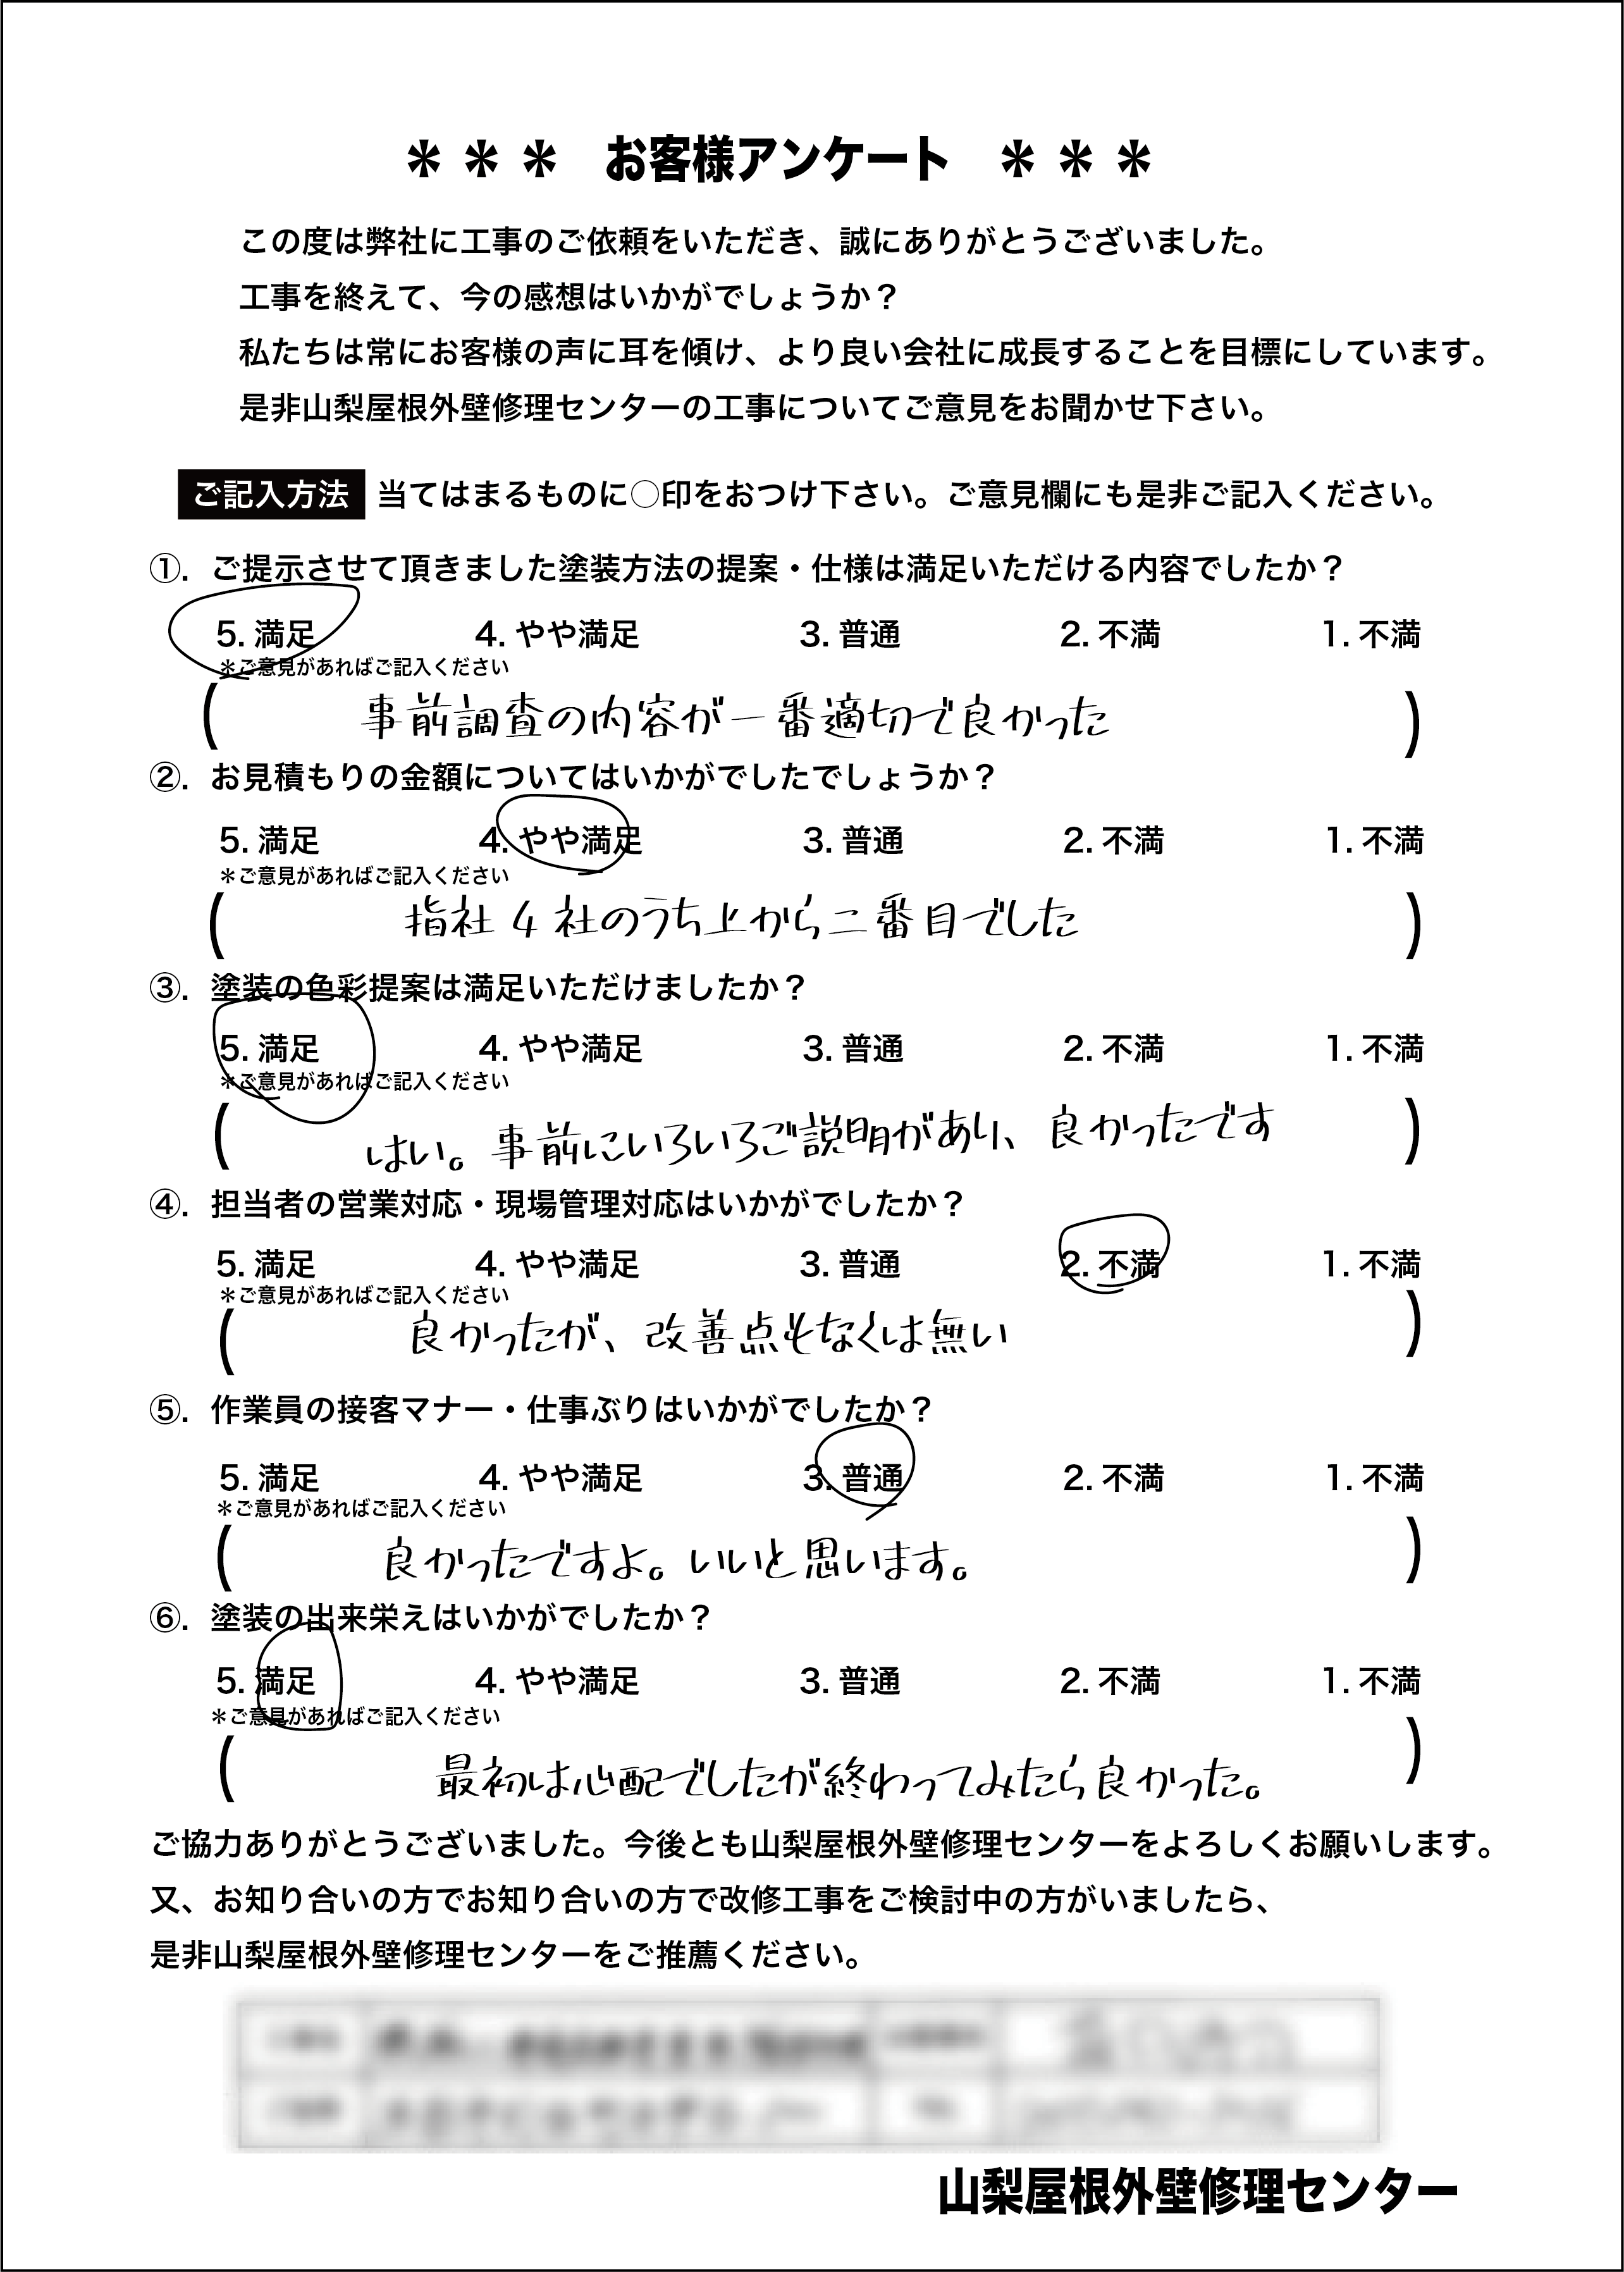 ＊＊＊ お客様アンケート ＊＊＊
この度は弊社に工事のご依頼をいただき、誠にありがとうございました。
工事を終えて、今の感想はいかがでしょうか？
私たちは常にお客様の声に耳を傾け、より良い会社に成長することを目標にしています。
是非山梨屋根外壁修理センターの工事についてご意見をお聞かせ下さい。
ご記入方法 当てはまるものに○印をおつけ下さい。ご意見欄にも是非ご記入ください。
①. ご提示させて頂きました塗装方法の提案・仕様は満足いただける内容でしたか？
5. 満足 4. やや満足 3. 普通 2. 不満 1. 不満
＊ご意見があればご記入ください
( 事前調査の内容が一番適切で良かった )
②. お見積もりの金額についてはいかがでしたでしょうか？
5. 満足 4. やや満足 3. 普通 2. 不満 1. 不満
＊ご意見があればご記入ください
( 指社4社のうち上から二番目でした )
③. 塗装の色彩提案は満足いただけましたか？
5. 満足 4. やや満足 3. 普通 2. 不満 1. 不満
＊ご意見があればご記入ください
( はい。事前にいろいろご説明があり、良かったです )
④. 担当者の営業対応・現場管理対応はいかがでしたか？
5. 満足 4. やや満足 3. 普通 2. 不満 1. 不満
＊ご意見があればご記入ください
( 良かったが、改善点もなくは無い )
⑤. 作業員の接客マナー・仕事ぶりはいかがでしたか？
5. 満足 4. やや満足 3. 普通 2. 不満 1. 不満
＊ご意見があればご記入ください
( 良かったですよ。いいと思います。 )
⑥. 塗装の出来栄えはいかがでしたか？
5. 満足 4. やや満足 3. 普通 2. 不満 1. 不満
＊ご意見があればご記入ください
( 最初は心配でしたが終わってみたら良かった。 )
ご協力ありがとうございました。今後とも山梨屋根外壁修理センターをよろしくお願いします。
又、お知り合いの方でお知り合いの方で改修工事をご検討中の方がいましたら、
是非山梨屋根外壁修理センターをご推薦ください。
山梨屋根外壁修理センター